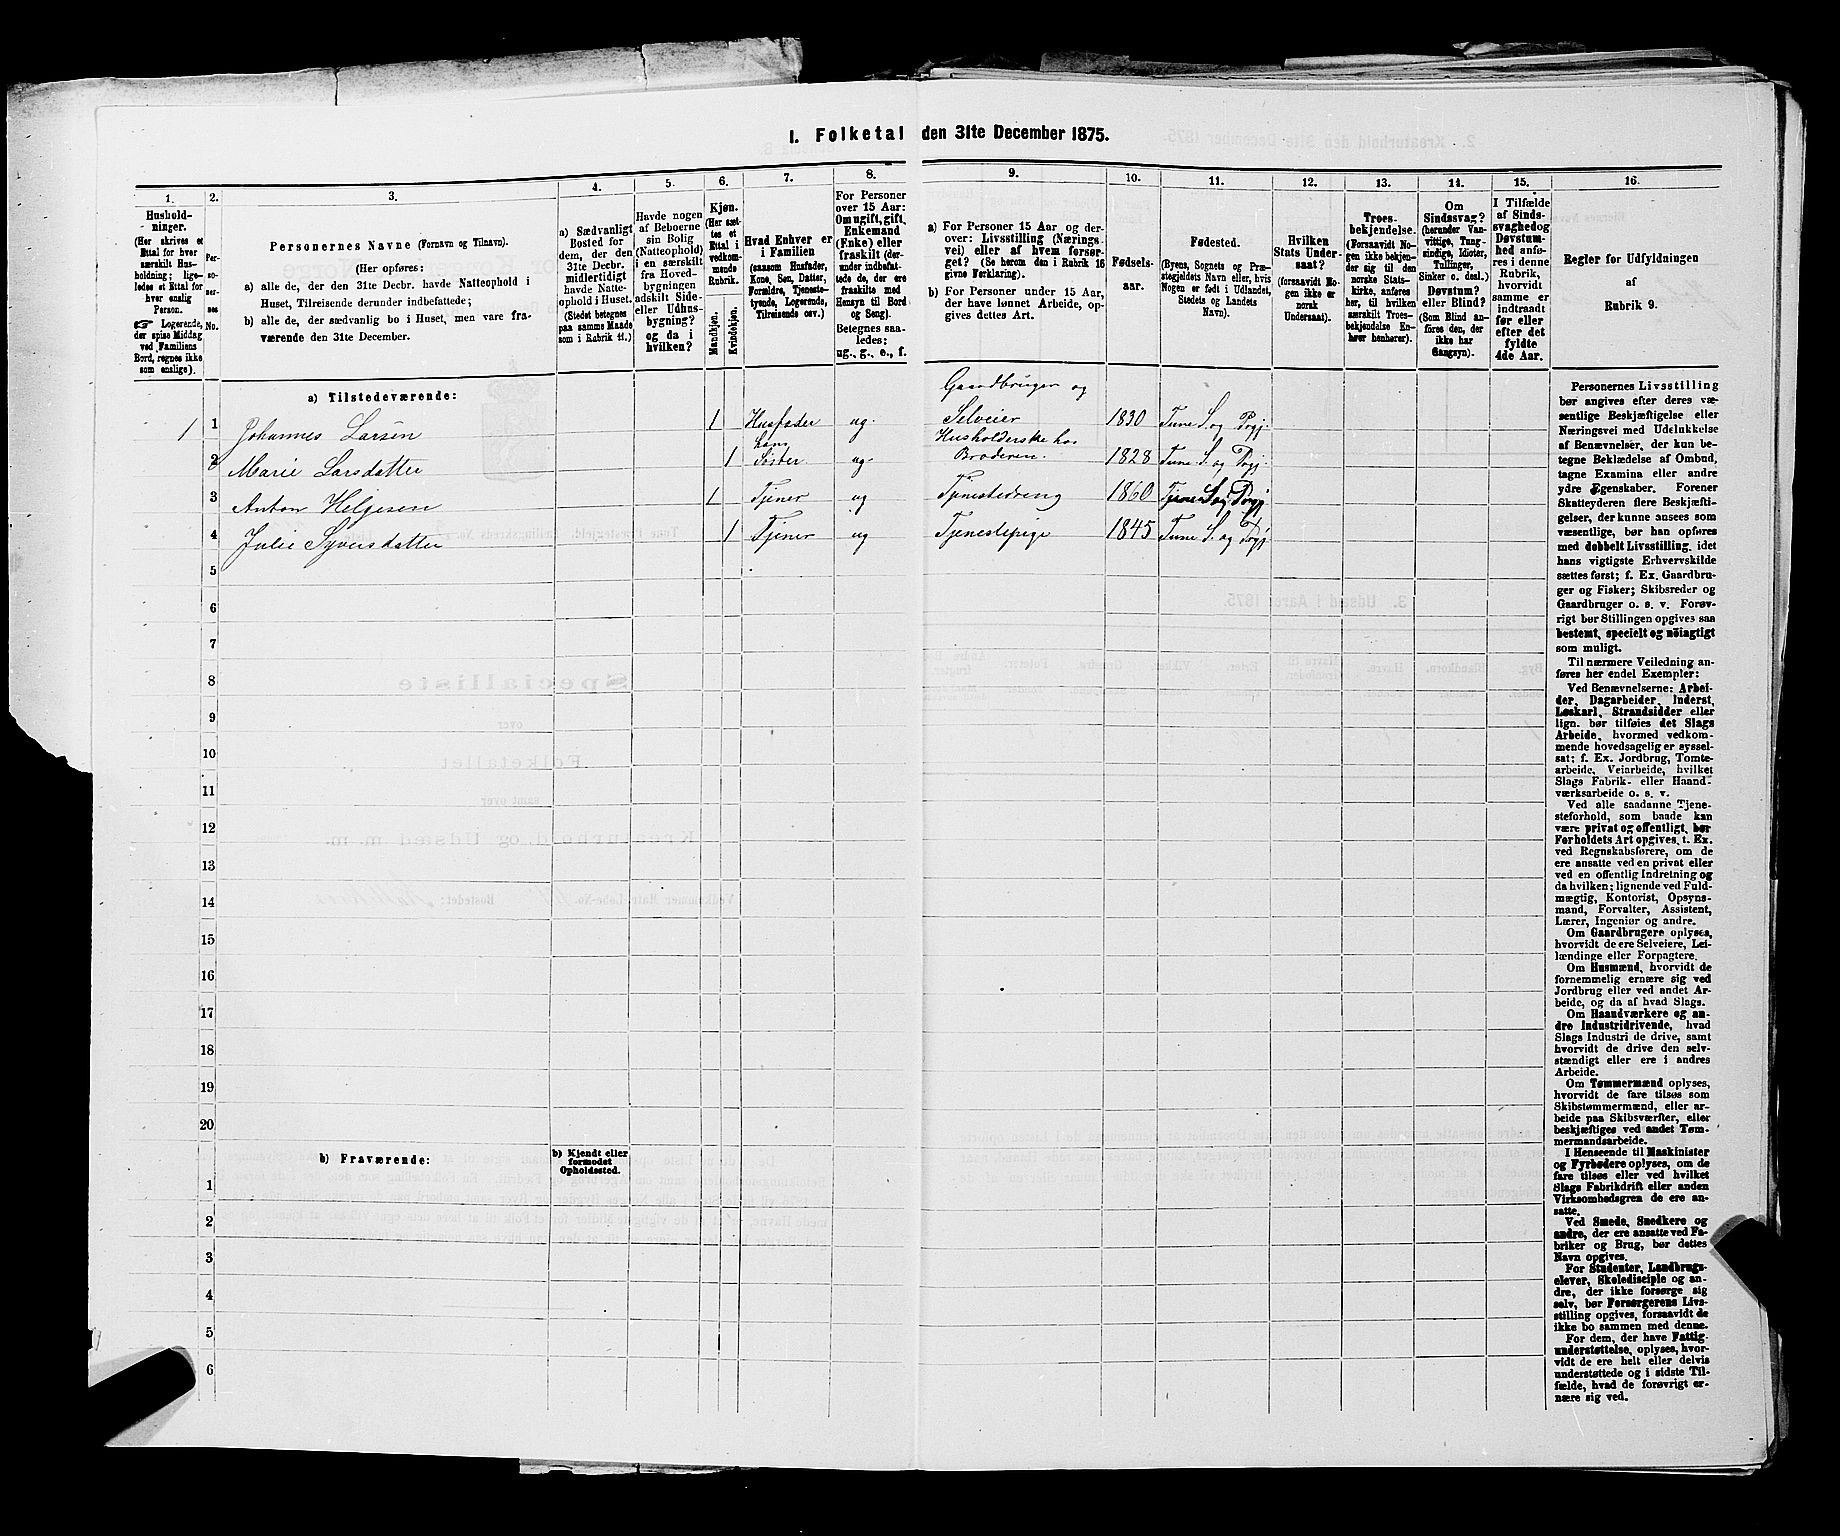 I. Folketal den 31te December 1875.
1.
Hushold-
ninger.
(Her skrives et
Ettal for hver
særskilt Hus-
holdning; lige-
ledes et Ettal for
hver enslig
Person.
☞ Logerende,
der spise Middag
ved Familiens
Bord, regnes ikke
som enslige).
2.
Per-
so-
ner-
nes
No.
3.
Personernes Navne (Fornavn og Tilnavn).
(Her opføres:
a) alle de, der den 31te Decbr. havde Natteophold i
Huset, Tilreisende derunder indbefattede;
b) alle de, der sædvanlig bo i Huset, men vare fra-
værende den 31te December.
4.
a) Sædvanligt
Bosted for
dem, der den
31te Decbr.
midlertidigt
havde Natte-
ophold i Huset.
(Stedet betegnes
paa samme Maade
som i Rubrik 11.)
5.
Havde nogen
af Beboerne
sin Bolig
(Natteophold)
i en særskilt
fra Hoved-
bygningen
adskilt Side-
eller Udhus-
bygning?
og da i
hvilken?
6.
Kjøn.
(Her sæt-
tes et
Ettal i
vedkom-
mende
Rubrik.
Mandkjøn.
Kvindekjøn.
7.
Hvad Enhver er
i Familien
(saasom Husfader,
Kone, Søn, Datter,
Forældre, Tjeneste-
tyende, Logerende,
Tilreisende osv.)
8.
For Personer
over 15 Aar:
Om ugift, gift,
Enkemand
(Enke) eller
fraskilt (der-
under indbefat-
tede de, der ere
fraskilte med
Hensyn til Bord
og Seng).
Betegnes saa-
ledes:
ug., g., e., f.
9.
a) For Personer 15 Aar og der-
over: Livsstilling (Nærings-
vei) eller af hvem forsør-
get? (Se herom den i Rubrik 16
givne Forklaring).
b) For Personer under 15 Aar,
der have lønnet Arbeide, op-
gives dettes Art.
10.
Fødsels-
aar.
11.
Fødested.
(Byens, Sognets og Præ-
stegjeldets Navn eller, hvis
Nogen er født i Udlandet,
Stedets og Landets
Navn).
12.
Hvilken
Stats Under-
saat?
(forsaavidt No-
gen ikke er
norsk
Undersaat).
13.
Troes-
bekjendelse.
(Forsaavidt No-
gen ikke bekjen-
der sig til den
norske Stats-
kirke, anføres
her, til hvilken
særskilt Troes-
bekjendelse En-
hver henhører).
14.
Om
Sindssvag?
(herunder Van-
vittige, Tung-
sindige, Idioter,
Tullinger,
Sinker o. desl.)
Døvstum?
eller Blind?
(Som Blind an-
føres den, der
ikke har
Gangsyn).
15.
I Tilfælde
af Sinds-
svaghed og
Døvstum-
hed anfø-
res i denne
Rubrik,
hvorvidt
samme er
indtraadt
før eller
efter det
fyldte
4de Aar.
16.
Regler for Udfyldningen
af
Rubrik 9.
a) Tilstedeværende:
Gaardbruger og
1 1 Johannes Larsen 1 Husfader ug. Selveier 1830 Tune S. og Prgj.
hans Husholderske hos
2 Marie Larsdatter 1 Søster ug. Broderen. 1828 Tune S. og Prgj.
3 Anton Helgesen 1 Tjener ug Tjenestedreng 1860 Tune S. og Prgj.
4 Julie Syversdatter 1 Tjener ug Tjenestepige 1845 Tune S. og Prgj
5
6
7
8
9
10
11
12
13
14
15
16
17
18
19
20
b) Fraværende:
b) Kjendt eller
formodet
Opholdssted.
1
2
3
4
5
6
Personernes Livsstilling
bør angives efter deres væ-
sentlige Beskjæftigelse eller
Næringsvei med Udelukkelse
af Benævnelser, der kun be-
tegne Beklædelse af Ombud,
tagne Examina eller andre
ydre Egenskaber. Forener
Skatteyderen flere Beskjæfti-
gelser, der kunne ansees som
væsentlige, bør han opføres
med dobbelt Livsstilling, idet
hans vigtigste Erhvervskilde
sættes først; f. Ex. Gaardbru-
ger og Fisker; Skibsreder og
Gaardbruger o. s. v. Forøv-
rigt bør Stillingen opgives saa
bestemt, specielt og nøiagtigt
som muligt.
Til nærmere Veiledning an-
føres her endel Exempler:
Ved Benævnelserne: Arbei-
der, Dagarbeider, Inderst,
Løskarl, Strandsidder eller
lign. bør tilføies det Slags
Arbeide, hvormed vedkom-
mende hovedsagelig er syssel-
sat; f. Ex. Jordbrug, Tomte-
arbeide, Veiarbeide, hvilket
Slags Fabrik- eller Haand-
værksarbeide o. s. v.
Ved alle saadanne Tjene-
steforhold, som baade kan
være privat og offentligt, bør
Forholdets Art opgives, t. Ex.
ved Regnskabsførere, om de
ere ansatte ved en privat eller
ved en offentlig Indretning og
da hvilken; lignende ved Fuld-
mægtig, Kontorist, Opsyns-
mand, Forvalter, Assistent,
Lærer, Ingeniør og andre.
Om Gaardbrugere oplyses,
hvorvidt de ere Selveiere, Lei-
lændinge eller Forpagtere.
Om Husmænd, hvorvidt de
fornemmelig ernære sig ved
Jordbrug eller ved andet Ar-
beide, og da af hvad Slags.
Om Haandværkere og an-
dre Industridrivende, hvad
Slags Industri de drive, samt
hvorvidt de drive den selv-
stændigt eller ere i andres
Arbeide.
Om Tømmermænd oplyses,
hvorvidt de fare tilsøs som
Skibstømmermænd, eller ar-
beide paa Skibsværfter, eller
beskjæftiges ved andet Tøm-
mermandsarbeide.
I Henseende til Maskinister
og Fyrbødere oplyses, om de
fare tilsøs eller ved hvilket
Slags Fabrikdrift eller anden
Virksomhedsgren de ere an-
satte.
Ved Smede, Snedkere og
andre, der ere ansatte ved Fa-
briker og Brug, bør dettes
Navn opgives.
For Studenter, Landbrugs-
elever, Skoledisciple og an-
dre, der ikke forsørge sig
selv, bør Forsørgerens Livs-
stilling opgives, forsaavidt de
ikke bo sammen med denne.
For dem, der have Fattig-
understøttelse, oplyses, hvor-
vidt de ere helt eller delvis
understøttede og i sidste Til-
fælde, hvad de forøvrigt er-
nære sig ved.